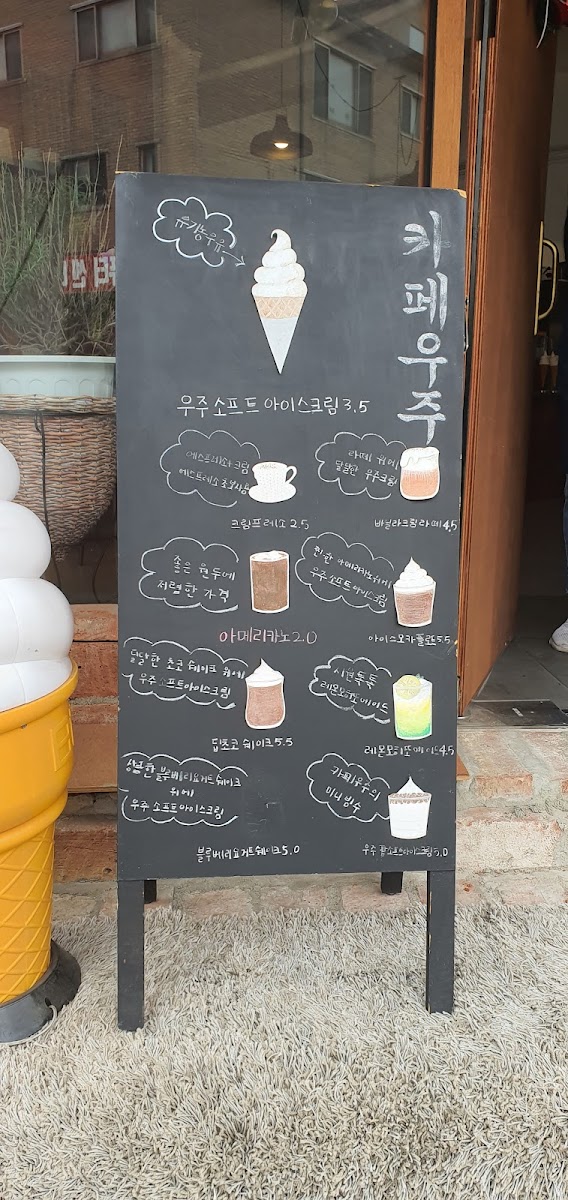 카페우주
유기농우유
우주 소프트 아이스크림 3.5
에스프레소와 크림
에스프레소 조청사용
크림프레소 2.5
라떼 위에
달달한 우주크림
바닐라크림라떼 4.5
좋은 원두에
저렴한 가격
아메리카노 2.0
진한 아메리카노위에
우주 소프트아이스크림
아이스모카플로트 5.5
달달한 초코 쉐이크 위에
우주 소프트아이스크림
딥초코 쉐이크 5.5
시원톡톡
레몬모히또에이드
레몬모히또에이드 4.5
상콤한 블루베리요거트쉐이크
위에
우주 소프트아이스크림
블루베리요거트쉐이크 5.0
카페우주의
미니빙수
우주 팥소프트아이스크림 5.0